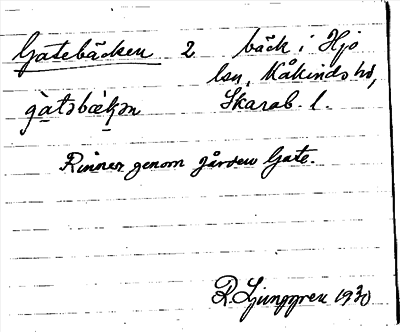 Gatebäcken 2 bäck i Hjo
lsn, Kåkinds hd,
gàtəbæ̀kən Skarab. l.
Rinner genom gården Gate.
R. Ljunggren 1930